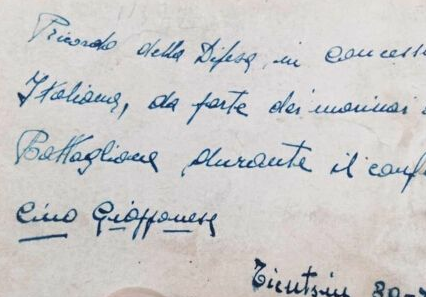 Ricordo della Difesa, in concess
Italiana, da parte dei marinai
Battaglione durante il conf
Cino Giapponese
Tientsin 30-